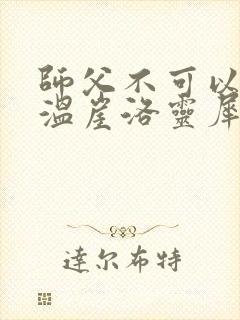 師父不可以
溫崖洛靈犀
達尔布特